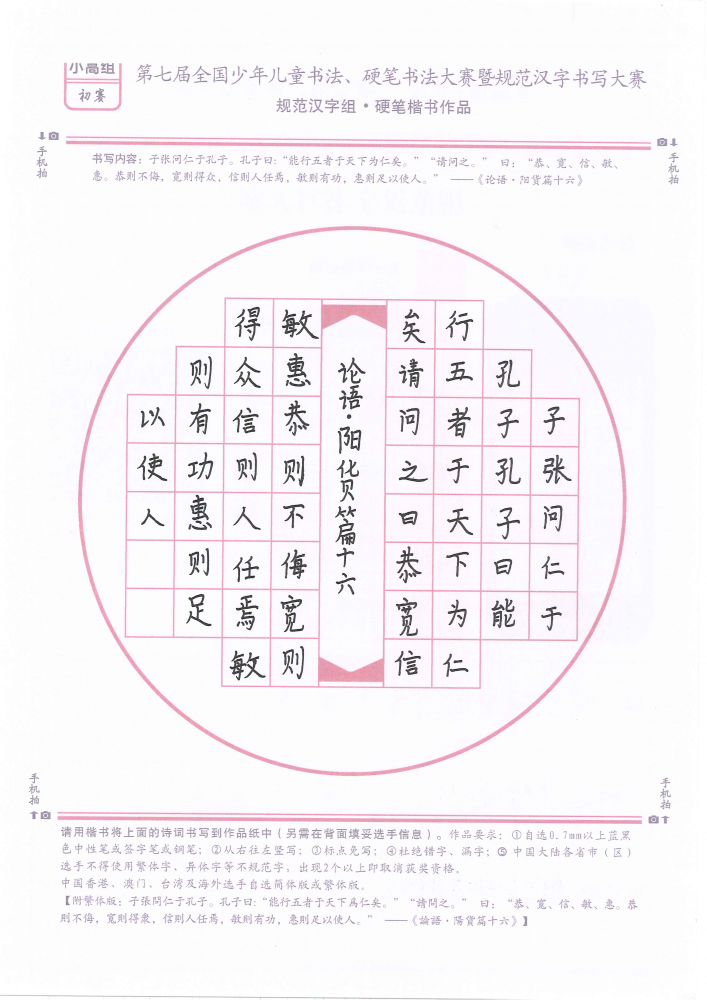 小高组
初赛
第七届全国少年儿童书法、硬笔书法大赛暨规范汉字书写大赛
规范汉字组·硬笔楷书作品
手机拍
手机拍
书写内容：子张问仁于孔子。孔子曰：“能行五者于天下为仁矣。”“请问之。”曰：“恭、宽、信、敏、
惠。恭则不侮，宽则得众，信则人任焉，敏则有功，惠则足以使人。”——《论语·阳货篇十六》
子张问仁于
孔子孔子曰能
行五者于天下为仁
矣请问之曰恭宽信
论语·阳货篇十六
敏惠恭则不侮宽则
得众信则人任焉敏
则有功惠则足
以使人
手机拍
手机拍
请用楷书将上面的诗词书写到作品纸中（另需在背面填妥选手信息）。作品要求：①自选0.7mm以上蓝黑
色中性笔或签字笔或钢笔；②从右往左竖写；③标点免写；④杜绝错字、漏字；⑤中国大陆各省市（区）
选手不得使用繁体字、异体字等不规范字，出现2个以上即取消获奖资格。
中国香港、澳门、台湾及海外选手自选简体版或繁体版。
【附繁体版：子張問仁于孔子。孔子曰：“能行五者于天下爲仁矣。”“請問之。”曰：“恭、宽、信、敏、惠。恭
则不侮，宽则得衆，信则人任焉，敏则有功，惠则足以使人。”——《論語·陽貨篇十六》】